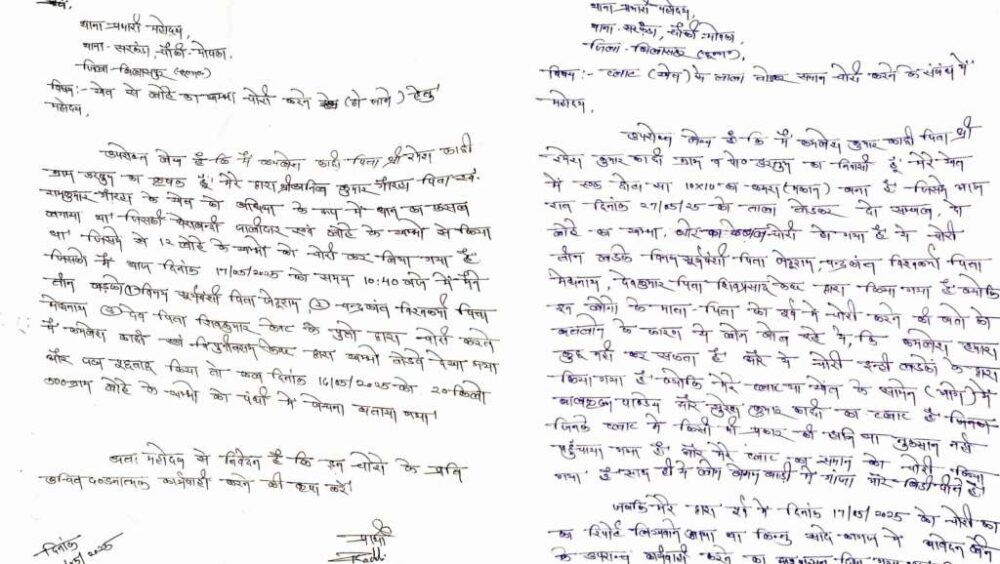 थाना प्रभारी महोदय,
थाना - सरकंडा, चौकी - मोपका,
जिला - बिलासपुर (छ०ग०)
विषय :- खेत से लोहे का खम्भा चोरी करने (हो जाने) हेतु
महोदय,
उपरोक्त लेख है कि मैं कमलेश काढ़ी पिता श्री रमेश काढ़ी
ग्राम का कृषक हूँ मेरे द्वारा श्री अनिल कुमार गौरहा पिता स्व.
रामकुमार गौरहा के खेत को अधिया के रूप में धान का फसल
लगाया था जिसकी घेराबन्दी जालीदार एवं लोहे के खम्भा से किया
था जिसमें से 12 लोहे के खम्भों को चोरी कर लिया गया है
जिसको मैं आज दिनांक 17/05/2025 को समय 10:40 बजे में मैंने
तीन लड़को (1) विनय सूर्यवंशी पिता जेठूराम (2) चन्द्रकांत विश्वकर्मा पिता
मेघनाथ (3) देव पिता शिवकुमार केंवट के पुत्रो द्वारा चोरी करते
मैं कमलेश काढ़ी एवं केंवट द्वारा खम्भो तोडते देखा गया
और पूछताछ किया तो कल दिनांक 16/05/2025 को 20 किलो
500 ग्राम लोहे के खम्भो को में बेचना बताया गया।
अतः महोदय से निवेदन है कि इन चोरो के प्रति
उचित दण्डनात्मक कार्यवाही करने की कृपा करें।
दिनांक
/05/2025
प्रार्थी
थाना प्रभारी महोदय,
थाना - सरकंडा, चौकी - मोपका,
जिला - बिलासपुर (छ०ग०)
विषय :- प्लाट (खेत) के ताला तोडकर समान चोरी करने के संबंध में
महोदय,
उपरोक्त लेख है कि मैं कमलेश कुमार काढ़ी पिता श्री
रमेश कुमार काढ़ी ग्राम व पो० का निवासी हूँ मेरे खेत
में एक छोटा सा 10x10 का कमरा (मकान) बना है जिसमें आज
रात दिनांक 27/05/25 को ताला तोडकर दो सब्बल, दो
लोहे का खम्भा, चोरी हो गया है ये चोरी
तीन लडके विनय सूर्यवंशी पिता जेठूराम, चन्द्रकांत विश्वकर्मा पिता
मेघनाथ, देवकुमार पिता शिवप्रसाद केंवट द्वारा किया गया है क्योंकि
इन लोगो के माता-पिता को पूर्व में चोरी करने की बातो को
बतलाने के कारण ये लोग बोल रहे थे, कि कमलेश हमारा
कुछ नहीं कर सकता है और ये चोरी इन्ही लडको के द्वारा
किया गया है क्योंकि मेरे प्लाट या खेत के सामने (आगे) में
बालकृष्ण पाण्डेय और सुरेश कुमार काढ़ी का प्लाट है जिनका
जिनके प्लाट में किसी भी प्रकार की हानि या नुकसान नहीं
पहुँचाया गया है और मेरे प्लाट का समान को चोरी किया
गया है साथ ही ये लोग में गांजा और बिडी पीते है।
जबकि मेरे द्वारा पूर्व में दिनांक 17/05/2025 को चोरी का
का रिपोर्ट लिखवाने आया था किन्तु सादे कागज में आवेदन लेने
के उपरान्त कार्यवाही करने का दिया गया